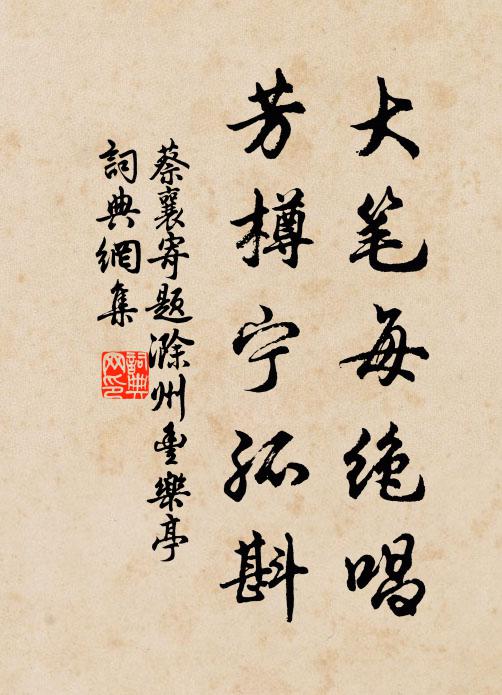 大笔每绝唱
芳樽宁孤斟
蔡襄寄题滁州豊樂亭
詞典網集
詞典网印